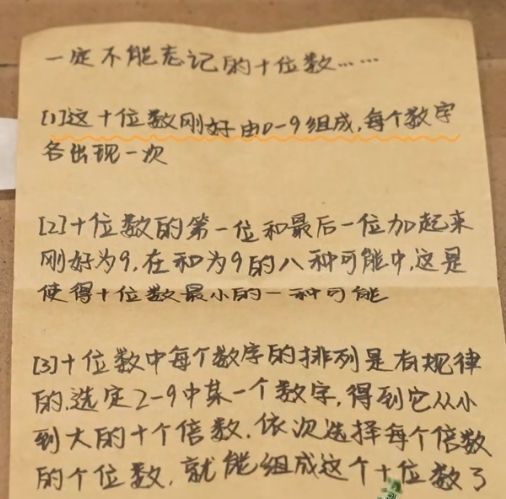 一定不能忘记的十位数……
[1]这十位数刚好由0-9组成,每个数字
各出现一次
[2]十位数的第一位和最后一位加起来
刚好为9,在和为9的八种可能中,这是
使得十位数最小的一种可能
[3]十位数中每个数字的排列是有规律
的.选定2-9中某一个数字,得到它从小
到大的十个倍数.依次选择每个倍数
的个位数,就能组成这个十位数了